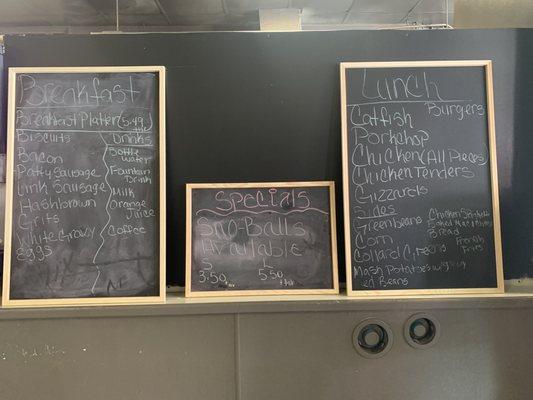 Breakfast
Breakfast Platter (5.49
Biscuits
Bacon
Patty Sausage
Link Sausage
Hashbrown
Grits
White Gravy
Eggs
Drinks
Bottle
Water
Fountain
Drink
Milk
Orange
Juice
Coffee
Specials
Sno-Balls
Available
S L
3.50 5.50
Lunch
Catfish Burgers
Porkchop
Chicken (All Pieces)
Chicken Tenders
Gizzards
Sides
Greenbeans
Corn
Collard Greens
Mash Potatoes
Beans
Bread
French
Fries